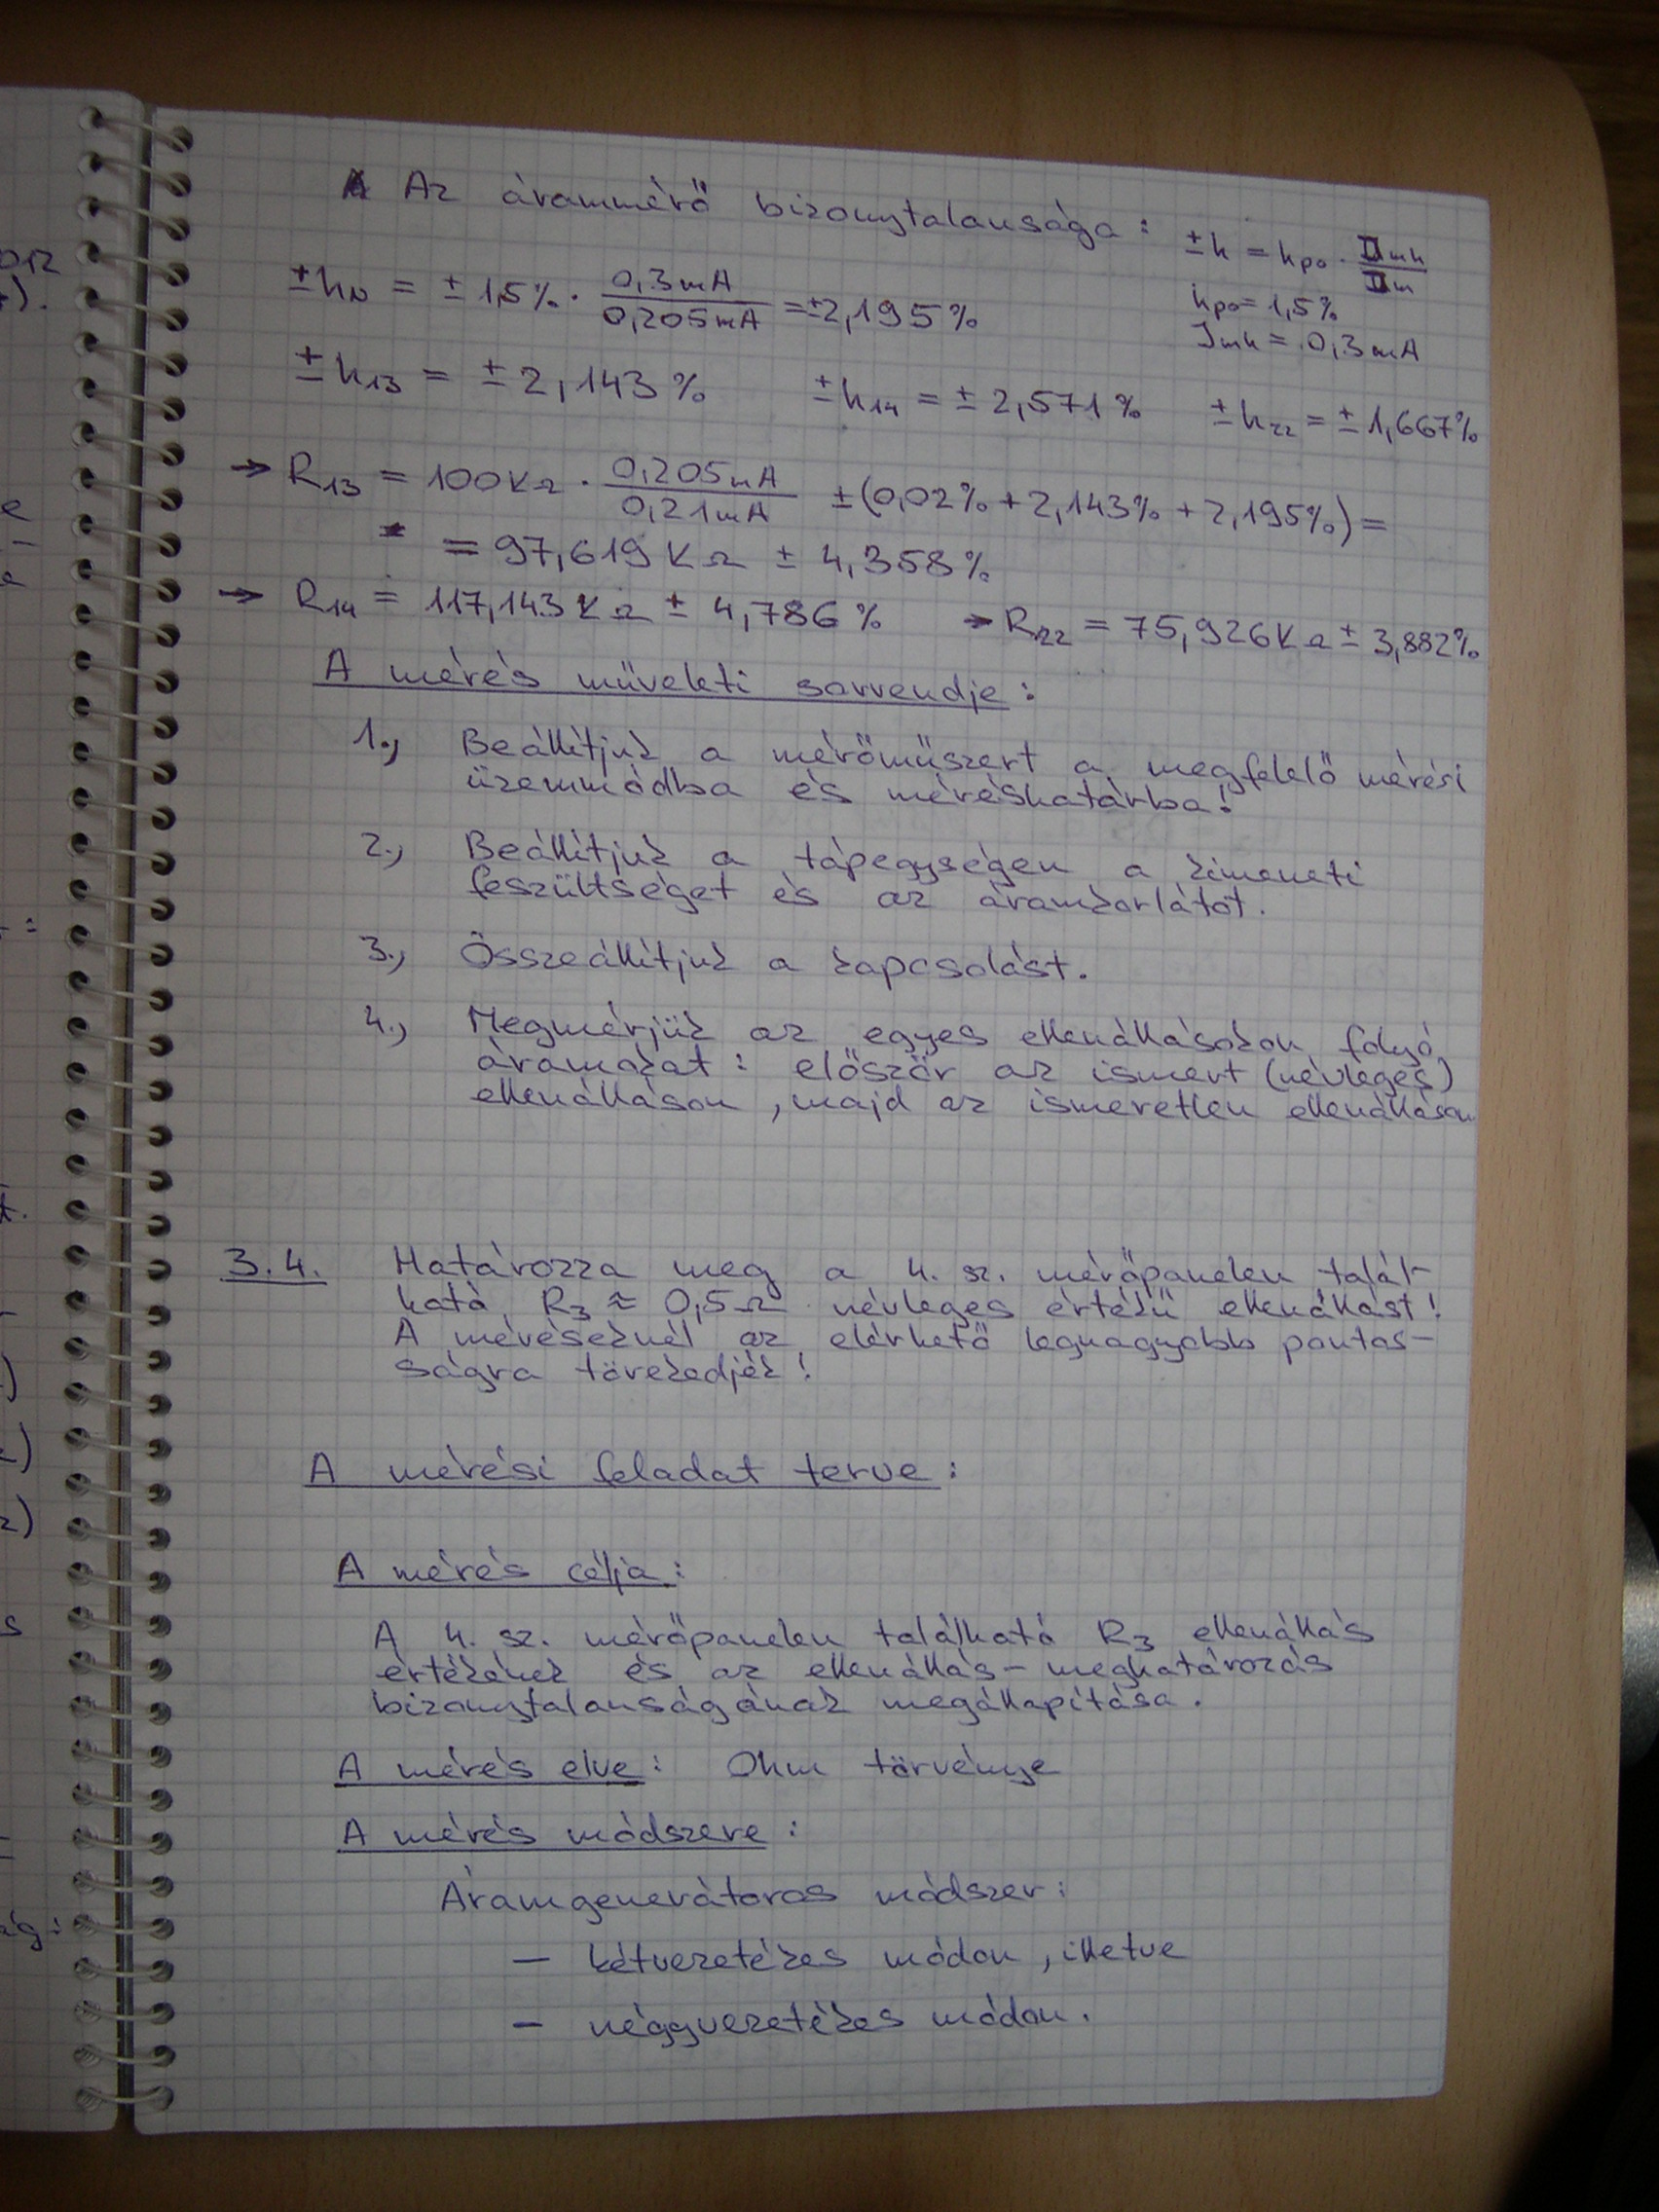 Az árammérő bizonytalansága :
±h = hpo · Imh / Im
hpo = 1,5%
Imh = 0,3mA
±hN = ±1,5% · 0,3mA / 0,205mA = ±2,195%
±h13 = ±2,143% ±h14 = ±2,571% ±h22 = ±1,667%
→ R13 = 100KΩ · 0,205mA / 0,21mA ±(0,02% + 2,143% + 2,195%) =
= 97,619KΩ ± 4,358%
→ R14 = 117,143KΩ ± 4,786% → R22 = 75,926KΩ ± 3,882%
A mérés műveleti sorrendje :
1., Beállítjuk a mérőműszert a megfelelő mérési
üzemmódba és méréshatárba!
2., Beállítjuk a tápegységen a kimeneti
feszültséget és az áramkorlátot.
3., Összeállítjuk a kapcsolást.
4., Megmérjük az egyes ellenállásokon folyó
áramokat : először az ismert (névleges)
ellenálláson , majd az ismeretlen ellenálláson
3.4. Határozza meg a 4. sz. mérőpanelen talál-
ható R3 ≈ 0,5Ω névleges értékű ellenállást!
A méréseknél az elérhető legnagyobb pontos-
ságra törekedjék!
A mérési feladat terve :
A mérés célja :
A 4. sz. mérőpanelen található R3 ellenállás
értékének és az ellenállás-meghatározás
bizonytalanságának megállapítása.
A mérés elve : Ohm törvénye
A mérés módszere :
Áramgenerátoros módszer :
– kétvezetékes módon , illetve
– négyvezetékes módon.